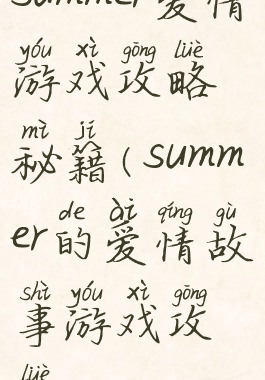 summer爱情
yóu xì gōng lüè
游戏攻略
mì jí
秘籍(summ
de ài qíng gù
er的爱情故
shì yóu xì gōng
事游戏攻
lüè